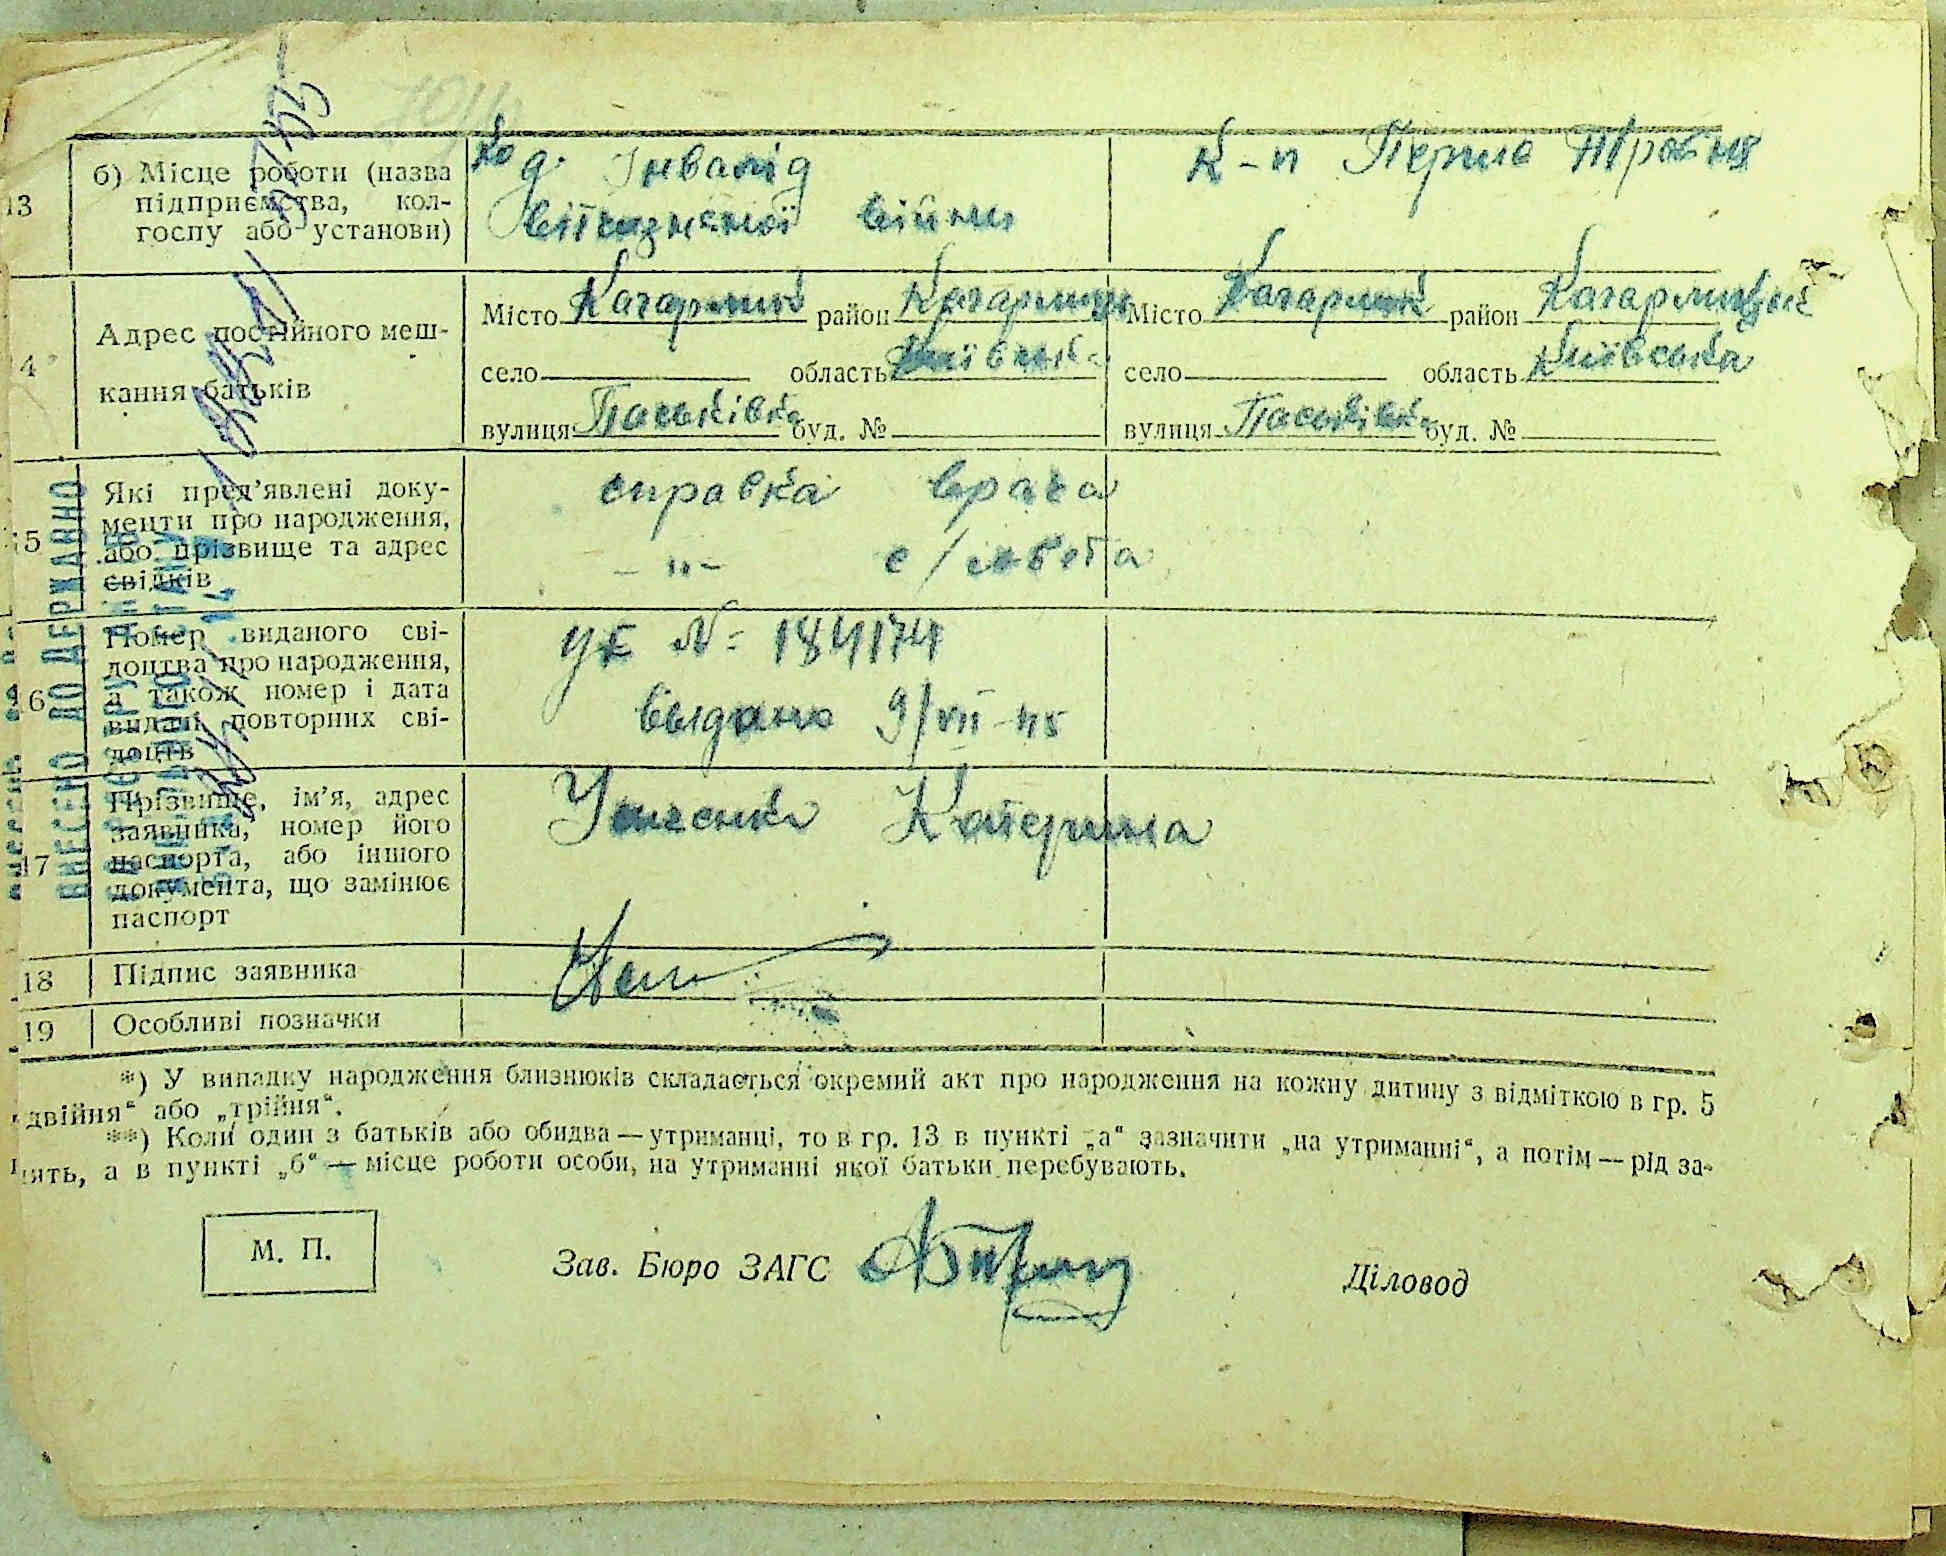 13 б) Місце роботи (назва підприємства, колгоспу або установи)
Інвалід
вітчизняної війни
к-п Перше Травня
Адрес постійного мешкання батьків
Місто Кагарлик район Кагарлицьк
село область Київська
вулиця Паськівка буд. №
Місто Кагарлик район Кагарлицький
село область Київська
вулиця Паськівка буд. №
Які пред'явлені документи про народження, або прізвище та адрес свідків
справка врача
-"- с/совета
Номер виданого свідоцтва про народження, а також номер і дата видачі повторних свідоцтв
УК № 184174
выдано 9/VII-45
17 Прізвище, ім'я, адрес заявника, номер його паспорта, або іншого документа, що замінює паспорт
Катерина
18 Підпис заявника
19 Особливі позначки
ВНЕСЕНО ДО ДЕРЖАВНО
*) У випадку народження близнюків складається окремий акт про народження на кожну дитину з відміткою в гр. 5
„двійня“ або „трійня“.
**) Коли один з батьків або обидва — утриманці, то в гр. 13 в пункті „а“ зазначити „на утриманні“, а потім — рід за-
нять, а в пункті „б“ — місце роботи особи, на утриманні якої батьки перебувають.
М. П.
Зав. Бюро ЗАГС
Діловод